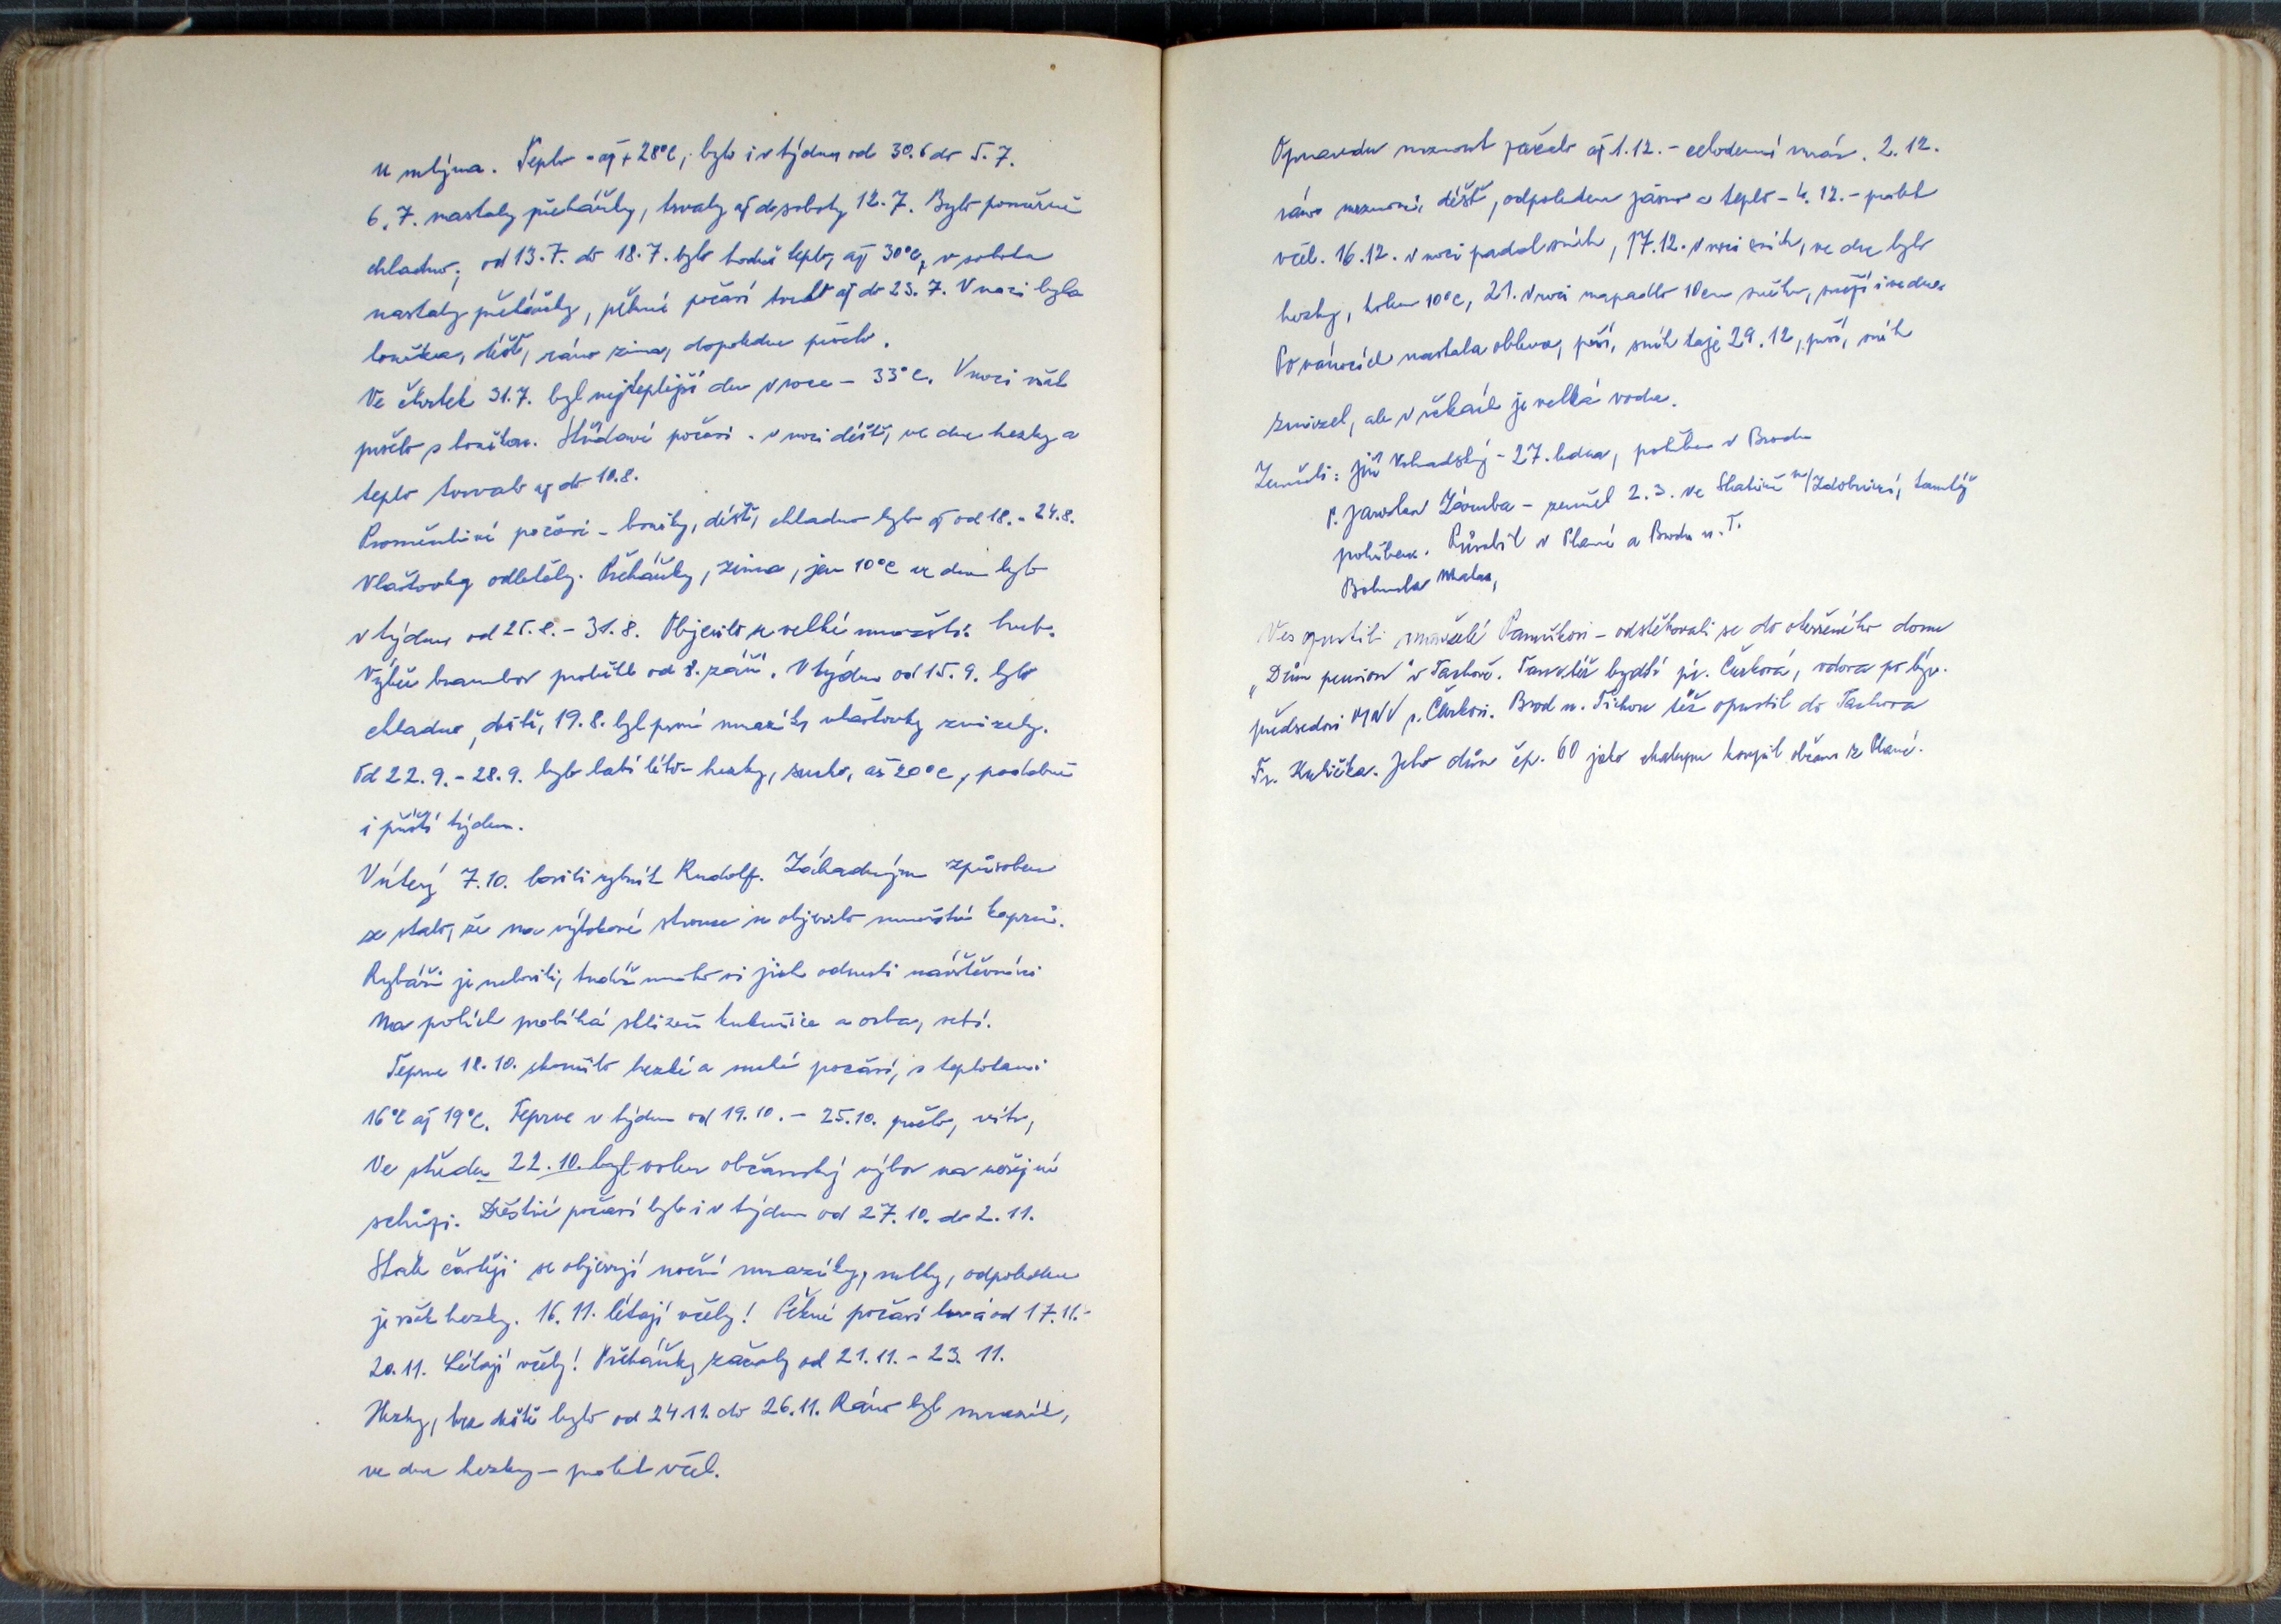 u mlýna. Teplo - až + 28°C, bylo i v týdnu od 30.6 do 5.7.
6.7. nastaly přeháňky, trvaly až do soboty 12.7. Bylo poměrně
chladno, od 13.7. do 18.7. bylo hodně teplo, až 30°C, v sobotu
nastaly přeháňky, pěkné počasí trvalo až do 23.7. V noci byla
bouřka, déšť, ráno zima, dopoledne pršelo.
Ve čtvrtek 31.7. byl nejteplejší den v roce - 33°C. V noci však
pršelo s bouřkou. Střídavé počasí - v noci déšť, ve dne hezky a
teplo trvalo až do 10.8.
Proměnlivé počasí - bouřky, déšť, chladno bylo až od 18. - 24.8.
Vlaštovky odletěly. Přeháňky, zima, jen 10°C ve dne bylo
v týdnu od 25.8. - 31.8. Objevilo se velké množství hub.
Výběr brambor proběhl od 8. září. V týdnu od 15.9. bylo
chladno, deště, 19.8. byl první mrazík, vlaštovky zmizely.
Od 22.9. - 28.9. bylo babí léto - hezky, sucho, až 20°C, podobně
i příští týden.
V úterý 7.10. lovili rybník Rudolf. Záhadným způsobem
se stalo, že na výtokové strouze se objevilo množství kaprů.
Rybáři je nelovili, tudíž mnoho si jich odnesli návštěvníci
Na polích probíhá sklizeň kukuřice a orba, setí.
Teprve 18.10. skončilo hezké a suché počasí, s teplotami
16°C až 19°C. Teprve v týdnu od 19.10. - 25.10. pršelo, vítr,
Ve středu 22.10. byl volen občanský výbor na veřejné
schůzi. Deštivé počasí bylo i v týdnu od 27.10. do 2.11.
Stále častěji se objevují noční mrazíky, mlhy, odpoledne
je však hezky. 16.11. létají včely! Pěkné počasí trvá od 17.11. -
20.11. Létají včely! Přeháňky začaly od 21.11. - 23.11.
Hezky, bez deště bylo od 24.11. do 26.11. Ráno byl mrazík,
ve dne hezky - prolet včel.
Opravdu mrznout začalo až 1.12. - celodenní mráz. 2.12.
ráno mrznoucí déšť, odpoledne jasno a teplo - 4.12. - prolet
včel. 16.12. v noci padal sníh, 17.12. v noci sníh, ve dne bylo
hezky, kolem 10°C, 21. v noci napadlo 10 cm sněhu, sněží i ve dne.
Po vánocích nastala obleva, prší, sníh taje 29.12., prší, sníh
zmizel, ale v řekách je velká voda.
Zemřeli: Jiří - 27. ledna, pohřben v Brodu
P. Jaroslav Zárumba - zemřel 2.3. ve Slatině n/Zdobnicí, tamtéž
pohřben. Působil v Plané a Brodu n. T.
Bohuslav
Ves opustili manželé - odstěhovali se do obecného domu
"Dům penzion" v Tachově. Tamtéž bydlí pí. Čurková, vdova po býv.
předsedovi MNV p. Čurkovi. Brod n. Tichou též opustil do Tachova
Fr. Kubička. Jeho dům čp. 60 jako chalupu koupil občan z Plané.